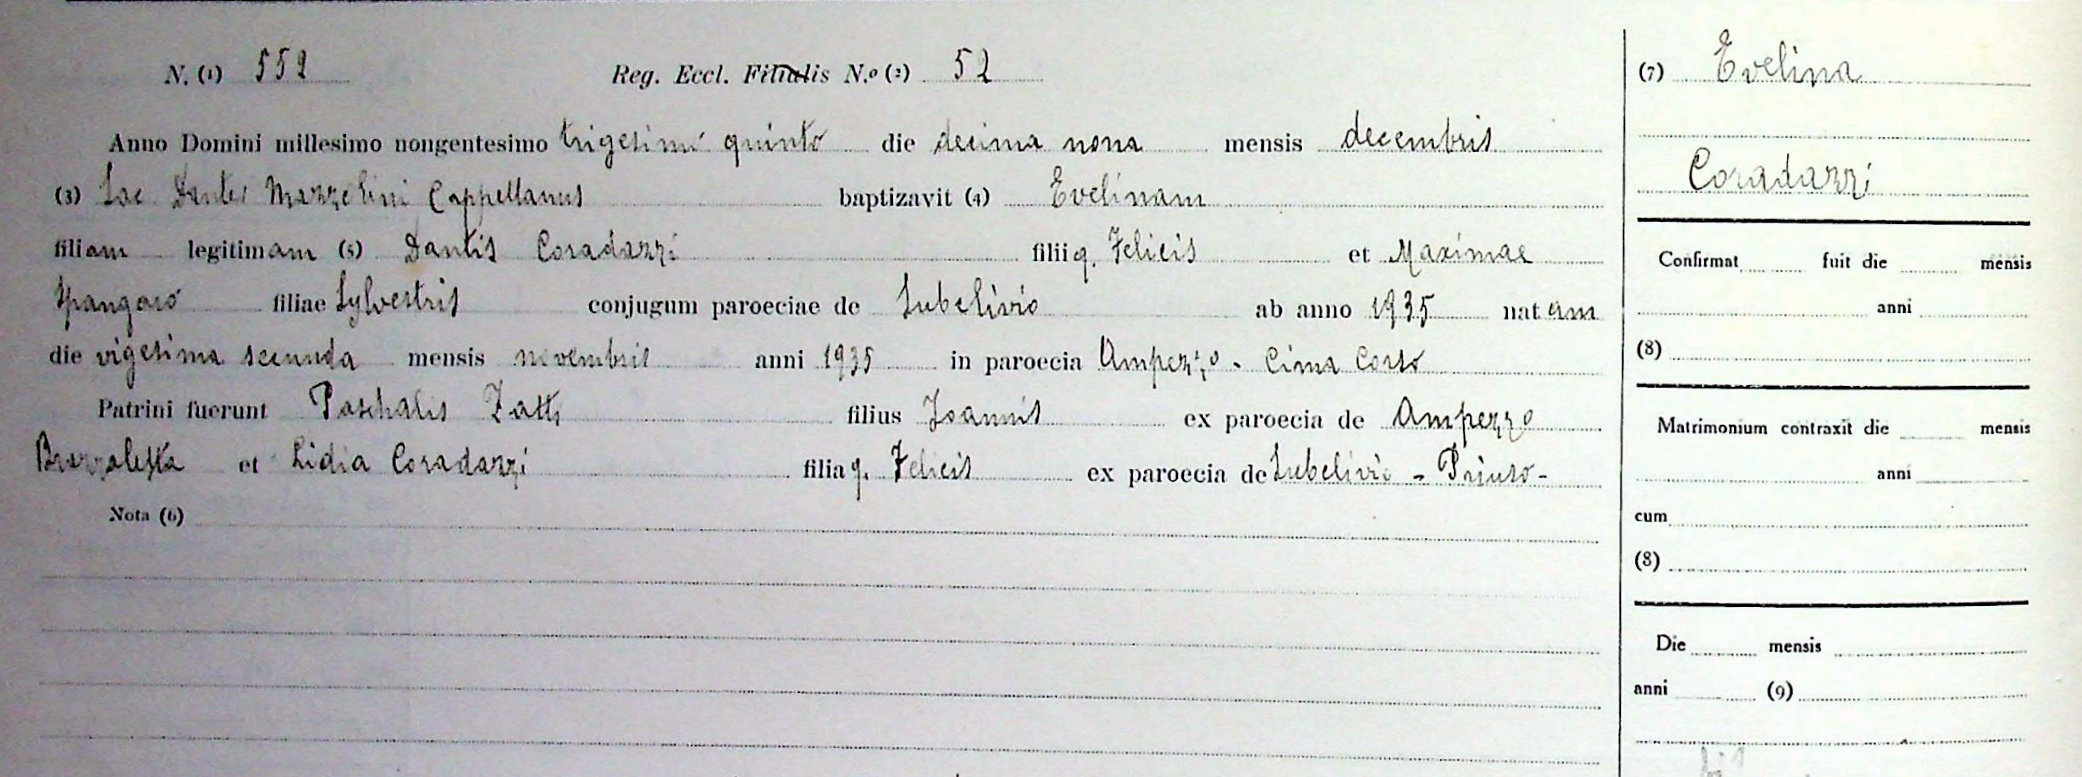 N. (1) 552 Reg. Eccl. Filialis N.o (2) 52
Anno Domini millesimo nongentesimo trigesimo quinto die decima nona mensis decembris
(3) Sac Dantes Mazzolini Cappellanus baptizavit (4) Evelinam
filiam legitimam (5) Dantis Coradazzi filii q. Felicis et Maximae
Spangaro filiae Sylvestris conjugum paroeciae de Subclivio ab anno 1935 natam
die vigesima secunda mensis novembris anni 1935 in paroecia Ampezzo - Cima Corso
Patrini fuerunt Paschalis Zatti filius Joannis ex paroecia de Ampezzo
et Lidia Coradazzi filia q. Felicis ex paroecia de Subclivio - Priuso -
Nota (6)
(7) Evelina
Coradazzi
Confirmat fuit die mensis
anni
(8)
Matrimonium contraxit die mensis
anni
cum
(8)
Die mensis
anni (9)